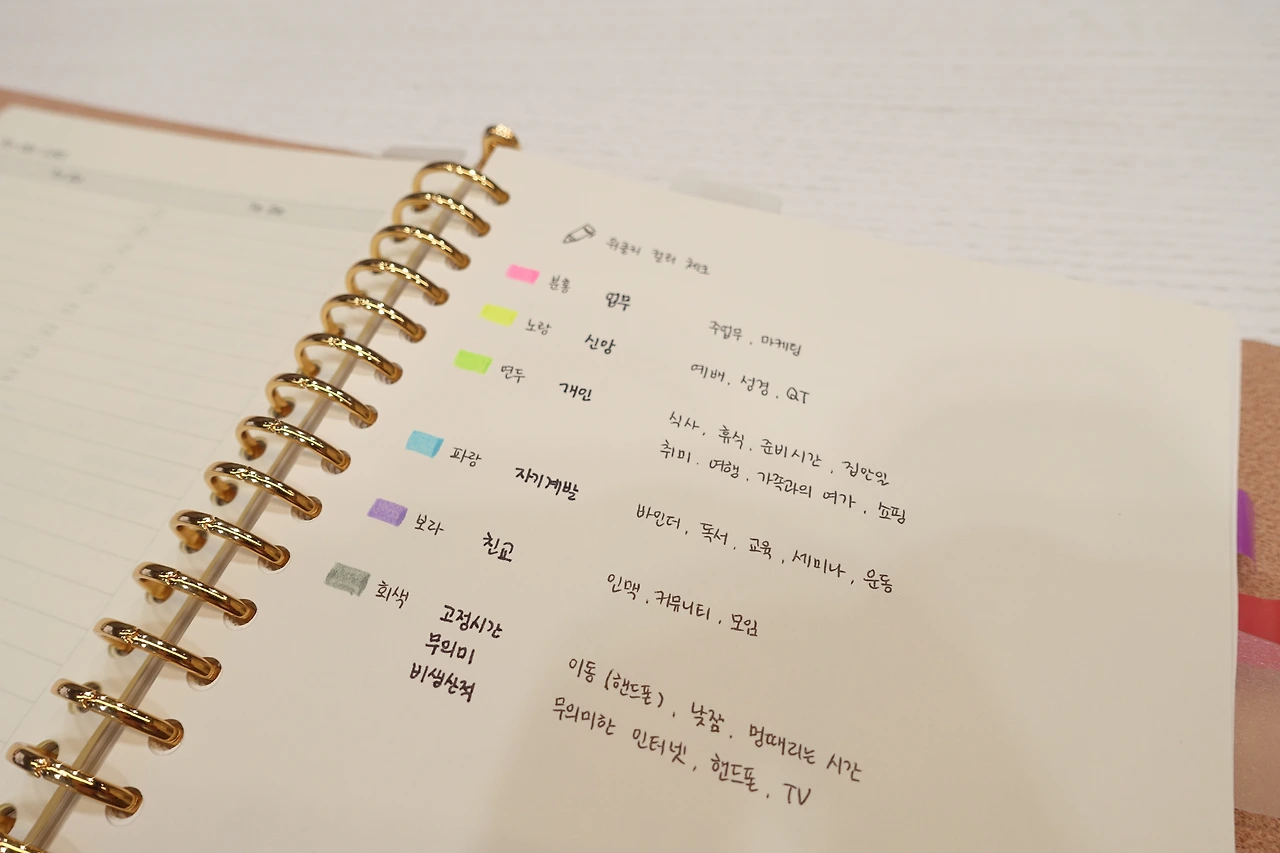 위클리 컬러 체크
분홍 업무 주업무, 마케팅
노랑 신앙 예배, 성경, QT
연두 개인 식사, 휴식, 준비시간, 집안일
취미, 여행, 가족과의 여가, 쇼핑
파랑 자기계발 바인더, 독서, 교육, 세미나, 운동
보라 친교 인맥, 커뮤니티, 모임
회색 고정시간 이동 (핸드폰), 낮잠, 멍때리는 시간
무의미 무의미한 인터넷, 핸드폰, TV
비생산적